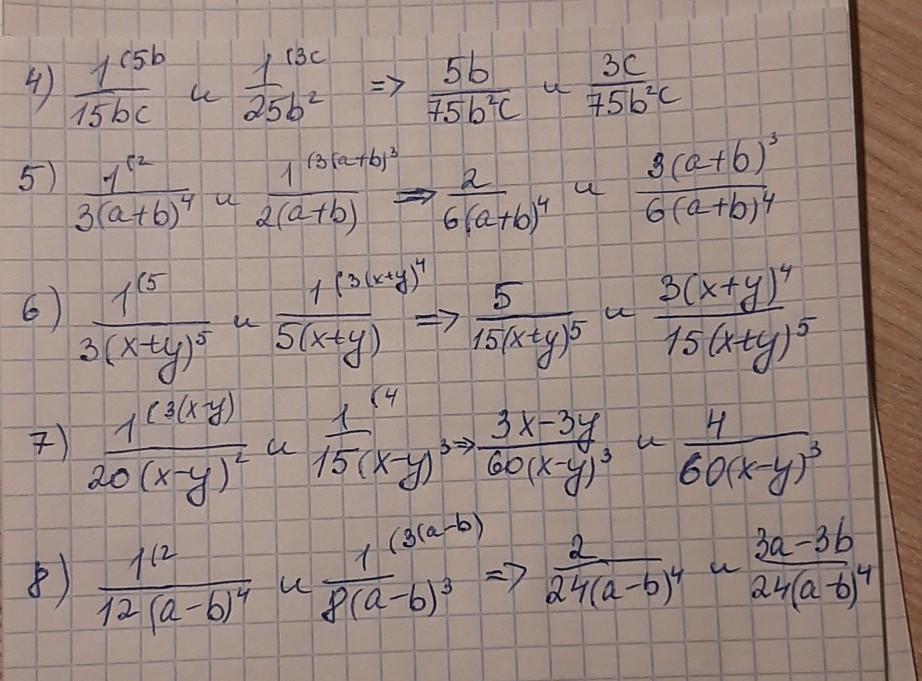 4) 1^(5b / 15bc и 1^(3c / 25b² => 5b / 75b²c и 3c / 75b²c
5) 1^(2 / 3(a+b)⁴ и 1^(3(a+b)³ / 2(a+b) => 2 / 6(a+b)⁴ и 3(a+b)³ / 6(a+b)⁴
6) 1^(5 / 3(x+y)⁵ и 1^(3(x+y)⁴ / 5(x+y) => 5 / 15(x+y)⁵ и 3(x+y)⁴ / 15(x+y)⁵
7) 1^(3(x-y) / 20(x-y)² и 1^(4 / 15(x-y)³ => 3x-3y / 60(x-y)³ и 4 / 60(x-y)³
8) 1^(2 / 12(a-b)⁴ и 1^(3(a-b) / 8(a-b)³ => 2 / 24(a-b)⁴ и 3a-3b / 24(a-b)⁴